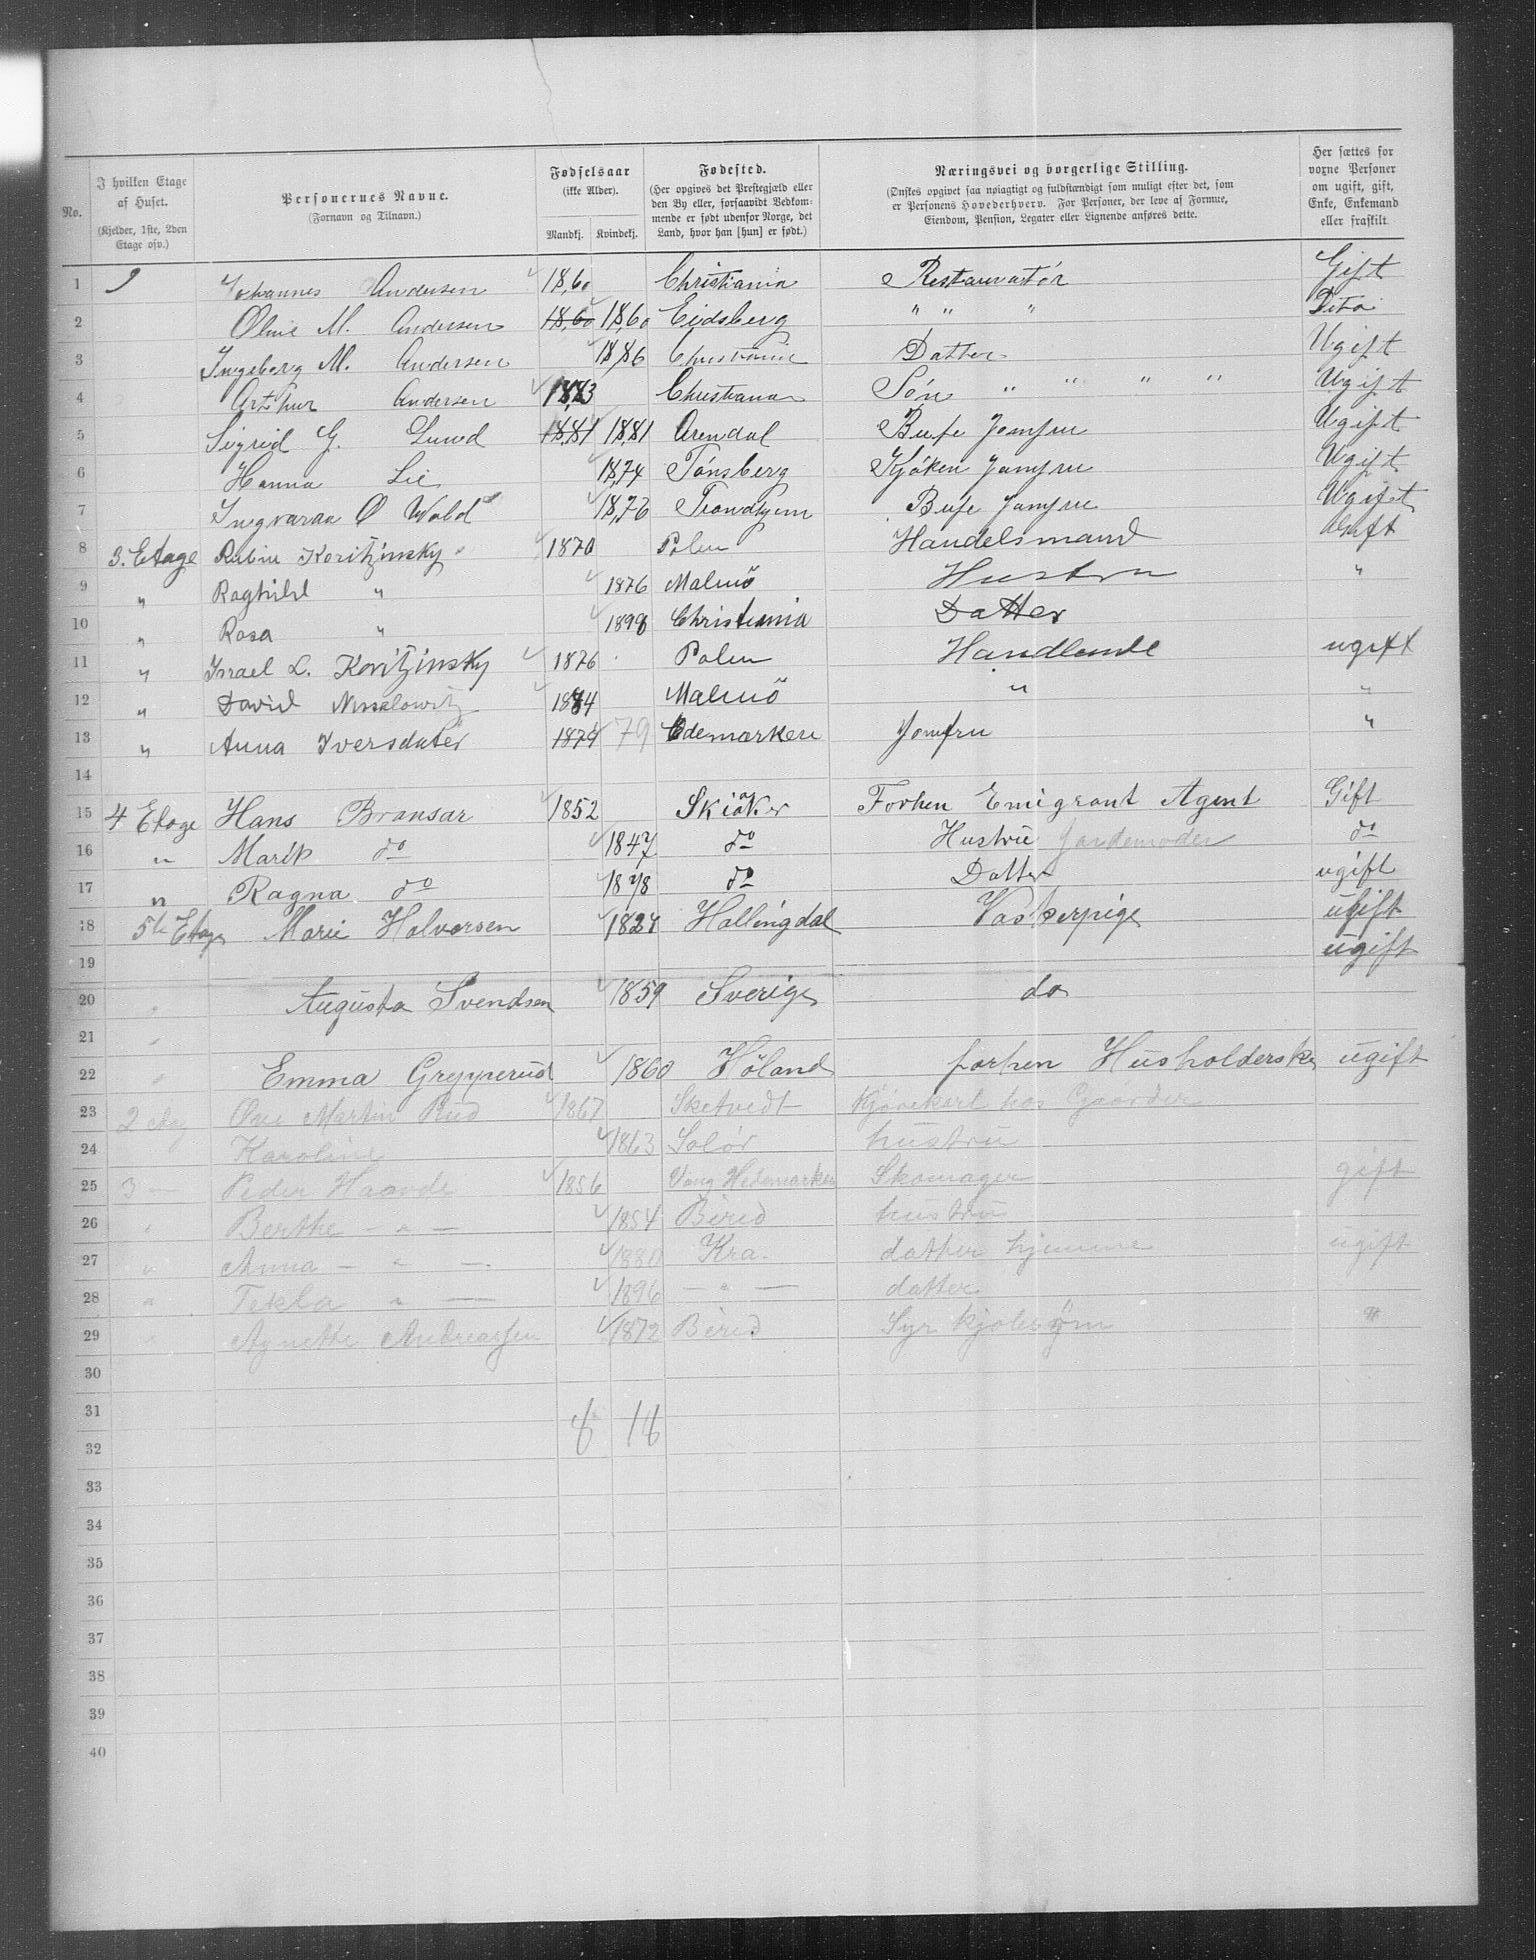 No.
I hvilken Etage af Huset. (Kjelder, 1ste, 2den Etage osv.)
Personernes Navne. (Fornavn og Tilnavn.)
Fødselsaar (ikke Alder). Mandkj. Kvindekj.
Fødested. (Her opgives det Prestegjæld eller den By eller, forsaavidt Vedkommende er født udenfor Norge, det Land, hvor han [hun] er født.)
Næringsvei og borgerlige Stilling. (Ønskes opgivet saa nøiagtigt og fuldstændigt som muligt efter det, som er Personens Hovederhverv. For Personer, der leve af Formue, Eiendom, Pension, Legater eller Lignende anføres dette.)
Her sættes for voxne Personer om ugift, gift, Enke, Enkemand eller fraskilt.
1 Johannes Andersen 1860 Christiania Restauratør Gift
2 Oline M. Andersen 1860 1860 Eidsberg " " " Dito
3 Ingeborg M. Andersen 1886 Christiania Datter Ugift
4 Arthur Andersen 1883 Christiania Søn " " " " Ugift
5 Sigrid G. Lund 1881 1881 Arendal Bufe Jomfru Ugift
6 Hanna Lie 1874 Tønsberg Kjøken Jomfru Ugift
7 Ingvaraa Ø Wold 1876 Trondhjem Bufe Jomfru Ugift
8 3. Etage Rubin Koritzinsky 1870 Polen Handelsmand Gift
9 " Raghild " 1876 Malmö Hustru "
10 " Rosa " 1898 Christiania Datter
11 " Israel L. Koritzinsky 1876 Polen Handlende ugift
12 " David Nissalowitz 1884 Malmö " "
13 " Anna Iversdater 1879 79 Edemarken Jomfru "
14
15 4 Etage Hans Bransar 1852 Skiaker Forhen Emigrant Agent Gift
16 " Marit do 1847 do Hustru Jordemoder do
17 " Ragna do 1878 do Datter ugift
18 5te Etage Marie Halvorsen 1824 Hallingdal Vaskerpige ugift
19 ugift
20 " Augusta Svendsen 1859 Sverige do
21 "
22 " Emma Grypperud 1860 Höland forhen Husholderske ugift
23 2 Martin Rud 1867 Sketvedt Kjørekarl hos Gaarder
24 Karoline 1863 Solør hustru
25 3 — Peder Haavde 1856 Vang Hedemarken Skomager gift
26 " Berthe — " — 1854 Birid hustru
27 " Anna — " — 1880 Kra. datter hjemme ugift
28 " Tekla " — 1896 — " — datter
29 " Agnethe Andreassen 1872 Birid Syr kjolesøm "
30
31
8 18
32
33
34
35
36
37
38
39
40